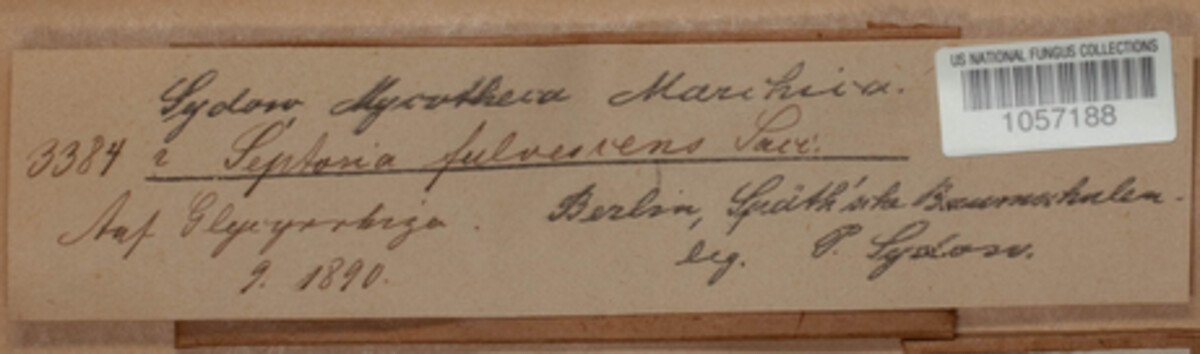 US NATIONAL FUNGUS COLLECTIONS
1057188
Sydow, Mycotheca Marchica.
3384 ? Septoria fulvescens Sacc.
Auf Glycyrrhiza.
9. 1890.
Berlin, Späth'sche Baumschulen.
leg. P. Sydow.